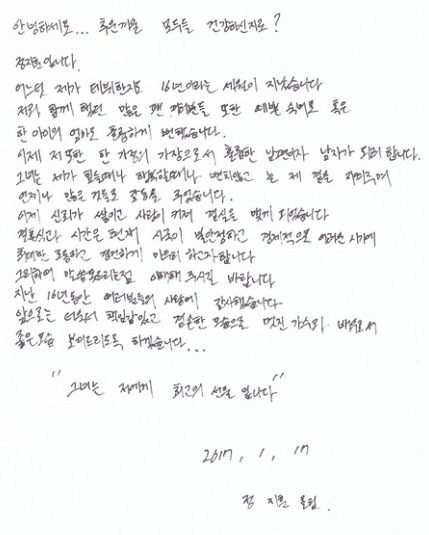 안녕하세요... 추운겨울 모두들 건강하신지요?
정지훈입니다.
어느덧 제가 데뷔한지도 16년이라는 세월이 지났습니다
저와 함께 했던 많은 팬 여러분들 또한 예쁜 숙녀로 혹은
한 아이의 엄마로 훌륭하게 변했습니다.
이제 저 또한 한 가정의 가장으로서 훌륭한 남편이자 남자가 되려 합니다.
그녀는 제가 힘들때나 행복할때나 변치않고 늘 제 곁을 지켜주며
언제나 많은 것들로 감동을 주었습니다.
이제 신뢰가 쌓이고 사랑이 커져 결실을 맺게 되었습니다
결혼식과 시간은 현재 시국이 불안정하고 경제적으로 어려운 시기에
최대한 조용하고 경건하게 마무리 하고자합니다
그리하여 말씀못드리는점 이해해 주시길 바랍니다
지난 16년동안 여러분들의 사랑에 감사했습니다
앞으로는 더욱더 책임감있고 겸손한 모습으로 멋진 가수와 배우로서
좋은모습 보이드리도록 하겠습니다...
"그녀는 저에게 최고의 선물 입니다"
2017. 1. 17
정 지훈 올림.